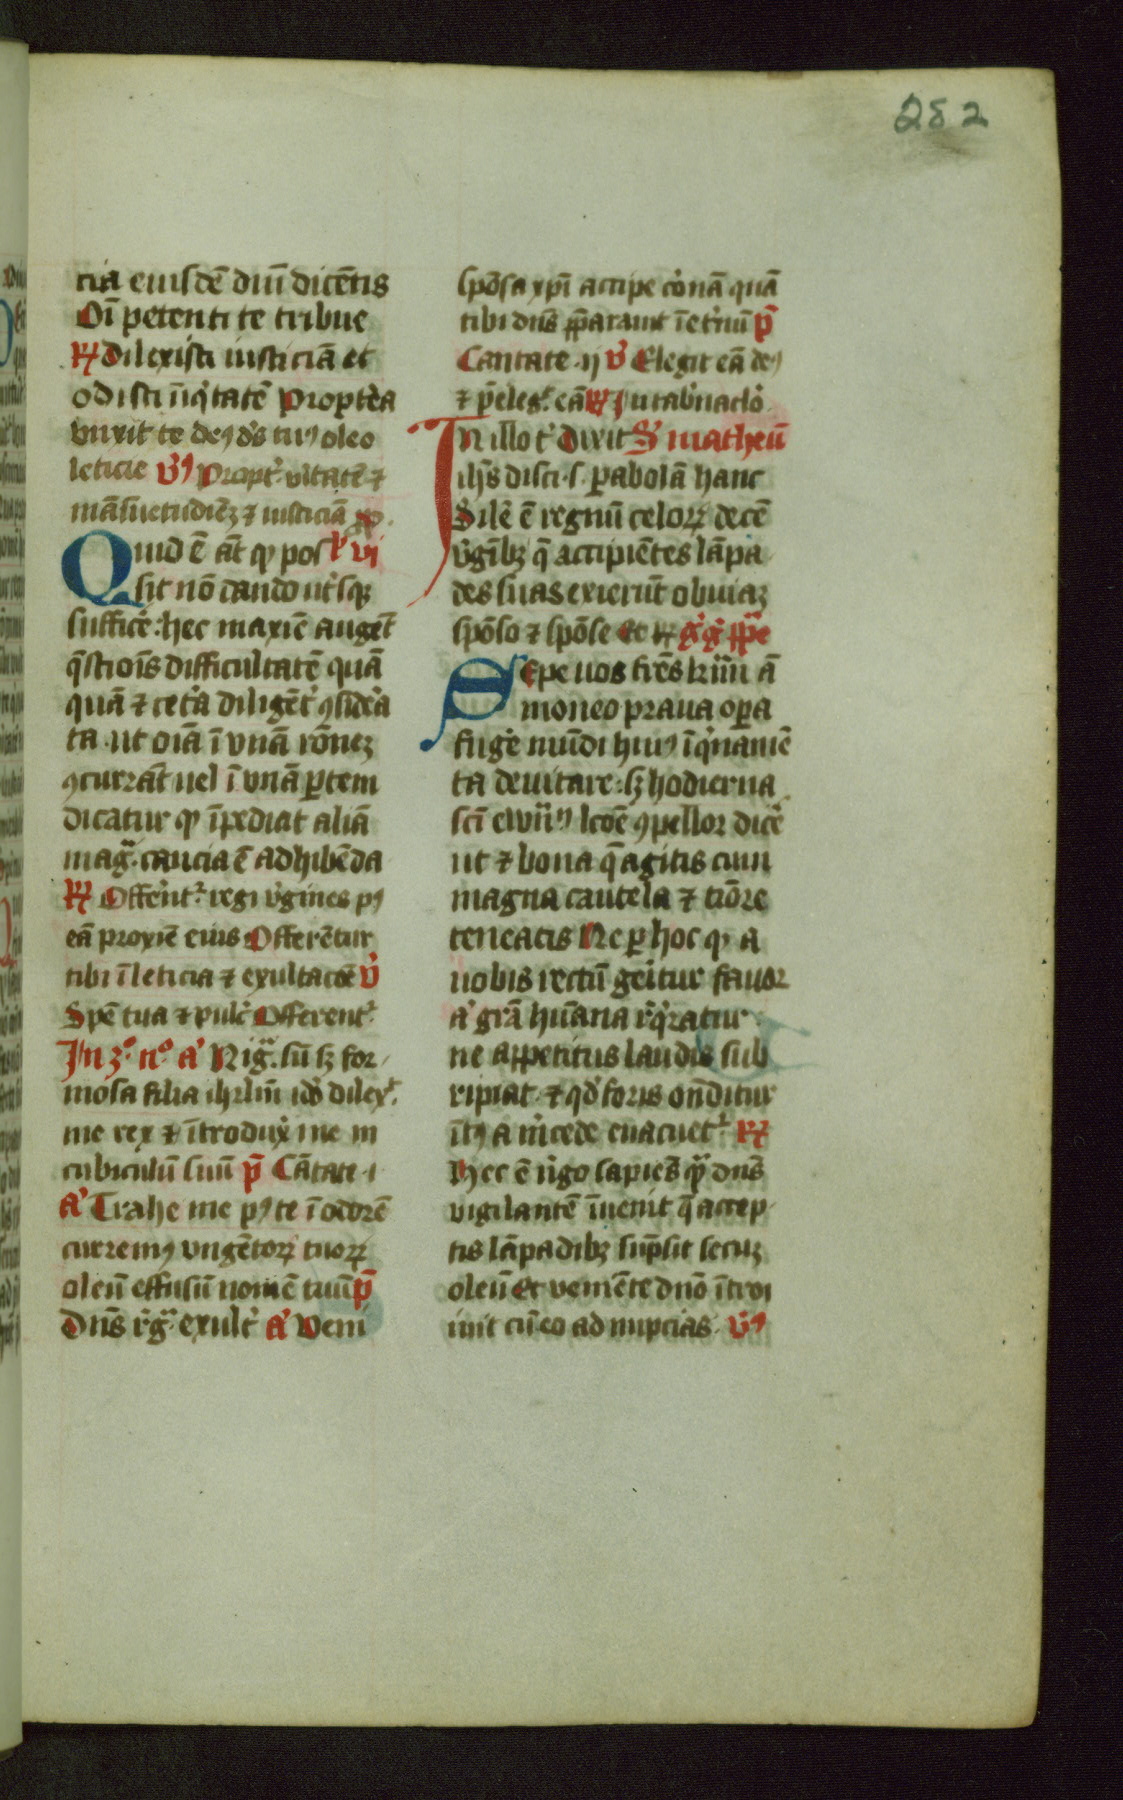 282
cia eiusdē dnī dicētis
Oī petenti te tribue
℞ dilexisti iusticiā et
odisti īiq̇tatē Propt̓ea
unxit te deꝯ dꝰs tuꝯ oleo
leticie v̓ꝯ Propt̓ v̓itatē ⁊
māsuetudīeꝫ ⁊ iusticiā pp̄
Quid ē āt ꝙ pos l̓ vi
sit nō dando ut̓sqꝫ
suffic̓e: hec maxīe auget̓
q̄stiōis difficultatē quā
quā ⁊ cet̓a diligēt̓ ꝯsid̓a
ta ut oīa ī unā rōneꝫ
ꝯcurrāt uel ī unā ꝑtem
dicatur ꝙ īpediat aliā
magͣ caucia ē adhibēda
℞ Offer̓nt᷑ regi v̓gines pꝯ
eā proxīe eius Offerētur
tibi ī leticia ⁊ exultacōe v̓
Spē tua ⁊ pulc̓ Offerent᷑
In ʒͦ nͦ a̓ Nigͣ sū sꝫ for
mosa filia ihrlm̄ idō dilex̓
me rex ⁊ ītrodux̓ me in
cubiculū suū p̄ Cātate i
a̓ Trahe me pꝯ te ī odorē
curremꝯ ungētoꝝ tuoꝝ
oleū effusū nomē tuū p̄
Dn̄s r̓gͣ exult̓ a̓ Veni
spōsa xp̄i accipe c̓onā quā
tibi dn̄s p̄parauit ī et̓nū p̄
Cantate ij v̓ Elegit eā deꝯ
⁊ p̄eleg̓ eā ℞ I ī tab̓nac̓lo
In illo t̓ Dixit S̓ matheū
ih̄s disci s ꝑabolā hanc
Sile̓ ē regnū celoꝝ decē
v̓gībꝫ q̄ accipiētes lāpa
des suas exierūt obuiaꝫ
spōso ⁊ spōse Et r̓ g̓g̓ pp̄e
Sepe uos fr̄es kr̄mi ā
moneo praua oꝑa
fug̓e mūdi huiꝯ īq̇namē
ta deuitare: sꝫ hodierna
sc̄i ewͣn̄ꝯ lc̄oē ꝯpellor dic̓e
ut ⁊ bona q̄ agitis cum
magna cautela ⁊ tiōre
teneatis Ne ꝑ hoc ꝙ a
uobis rectū geritur fauor
a̓ grā hūana r̓q̇ratur
ne appetitus laudis sub
ripiat ⁊ qd̓ foris ondītur
ītꝯ a m̓cede euacuet᷑ ℞
Hec ē v̓go sapiēs qͣ dn̄s
vigilantē īuenit q̄ accep
tis lāpadibꝫ sūpsit secuꝫ
oleū Et ueniēte dn̄o ītroi
uit cū eo ad nupcias v̓ꝯ